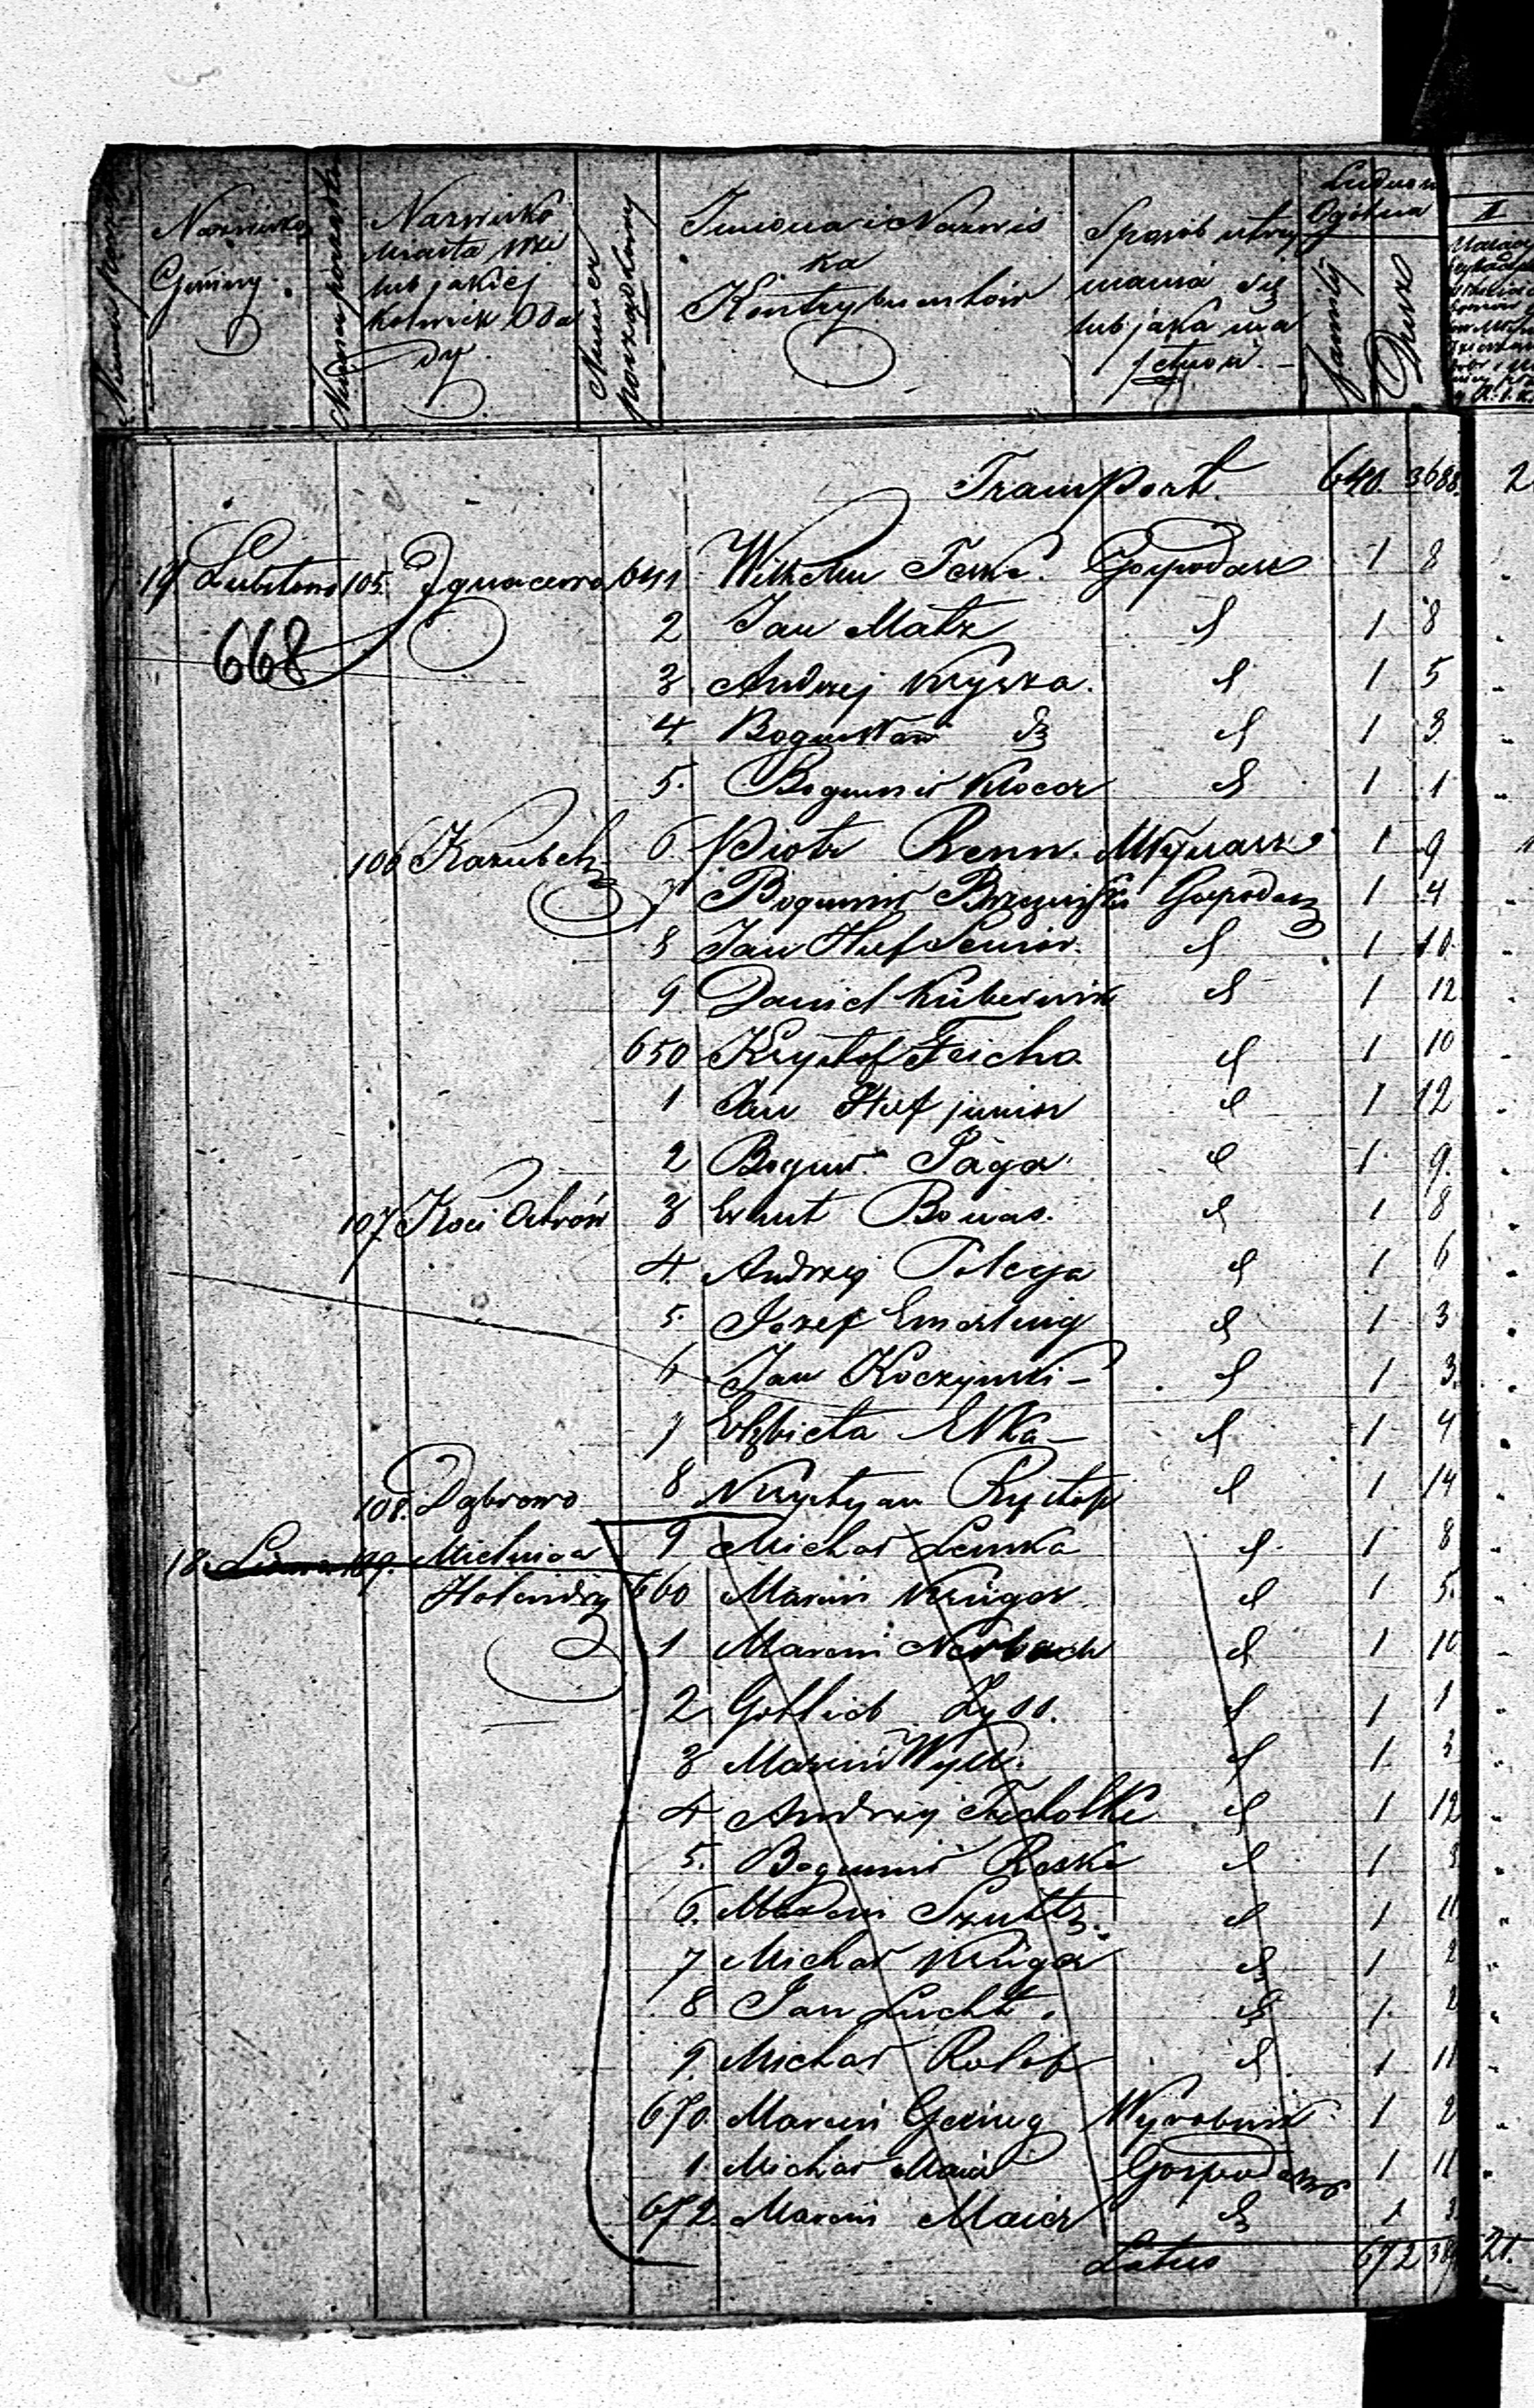 Numer porząd
Nazwisko
Gminy.
Numer porządk
Nazwisko
Miasta Wsi
lub jakiej
kolwiek Osa
dy
Numer
porządkowy
Imiona i Nazwis
ka
Kontrybuentów
Sposób utrzy
mania się
lub jaka ma
jętność.
Ludność
Ogólna
Familij
Dusz
II
Transport. 640. 3688. 2
17 Lubstowo 105. Ignacewo 641 Wilhelm Teske. Gospodarz 1 8
668
2 Jan Matz d 1 8
3. Andrzej Kryska. d 1 5
4. Bogusław d d 1 3
5. Bogumił Klocor d 1 1
106 Kazubek 6. Piotr Renn. Młynarz 1 9
7 Bogumił Brzeziński Gospodarz 1 4
8 Jan Huf Senior. d 1 10
9 Daniel d 1 12
650 Krysztof Feicho d 1 10
1 Jan Huf junior d 1 12
2 Bogum. Jaga d 1 9.
107 Koci Ostrów 3 Ernst Bonas. d 1 8
4. Andrzej Poleya d 1 6
5. Jozef Emerling d 1 3
6 Jan Koczyński – d 1 3.
7 Elżbieta Elka – d 1 4
108. Dąbrowo 8 Krystyan Rystop d 1 14
18. 109. Mielnica 9 Michał Lemka d 1 8
Holendry 660 Marcin Krüger d 1 5.
1 Marcin Norbach d 1 10
2 Gottlieb Zyss. d 1 1
3 Marcin Wylk. d 1 3
4 Andrzej Techolke d 1 12
5. Bogumił Reske d 1
6. Marcin Szultz. d 1 11
7 Michał Krüger d 1 2
8 Jan Lucht. d 1. 2
9. Michał Rolof d 1 11
670. Marcin Gering Wyrobnik 1 2
1. Michał Maier Gospodarz 1 11
672. Marcin Maier d 1 3
Latus 672 21.